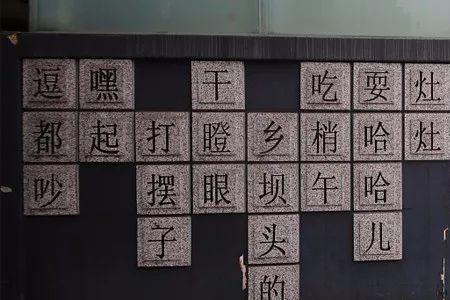 逗都吵
嘿起
打摆子
干瞪眼
乡坝头的
吃梢午
耍哈哈儿
灶灶